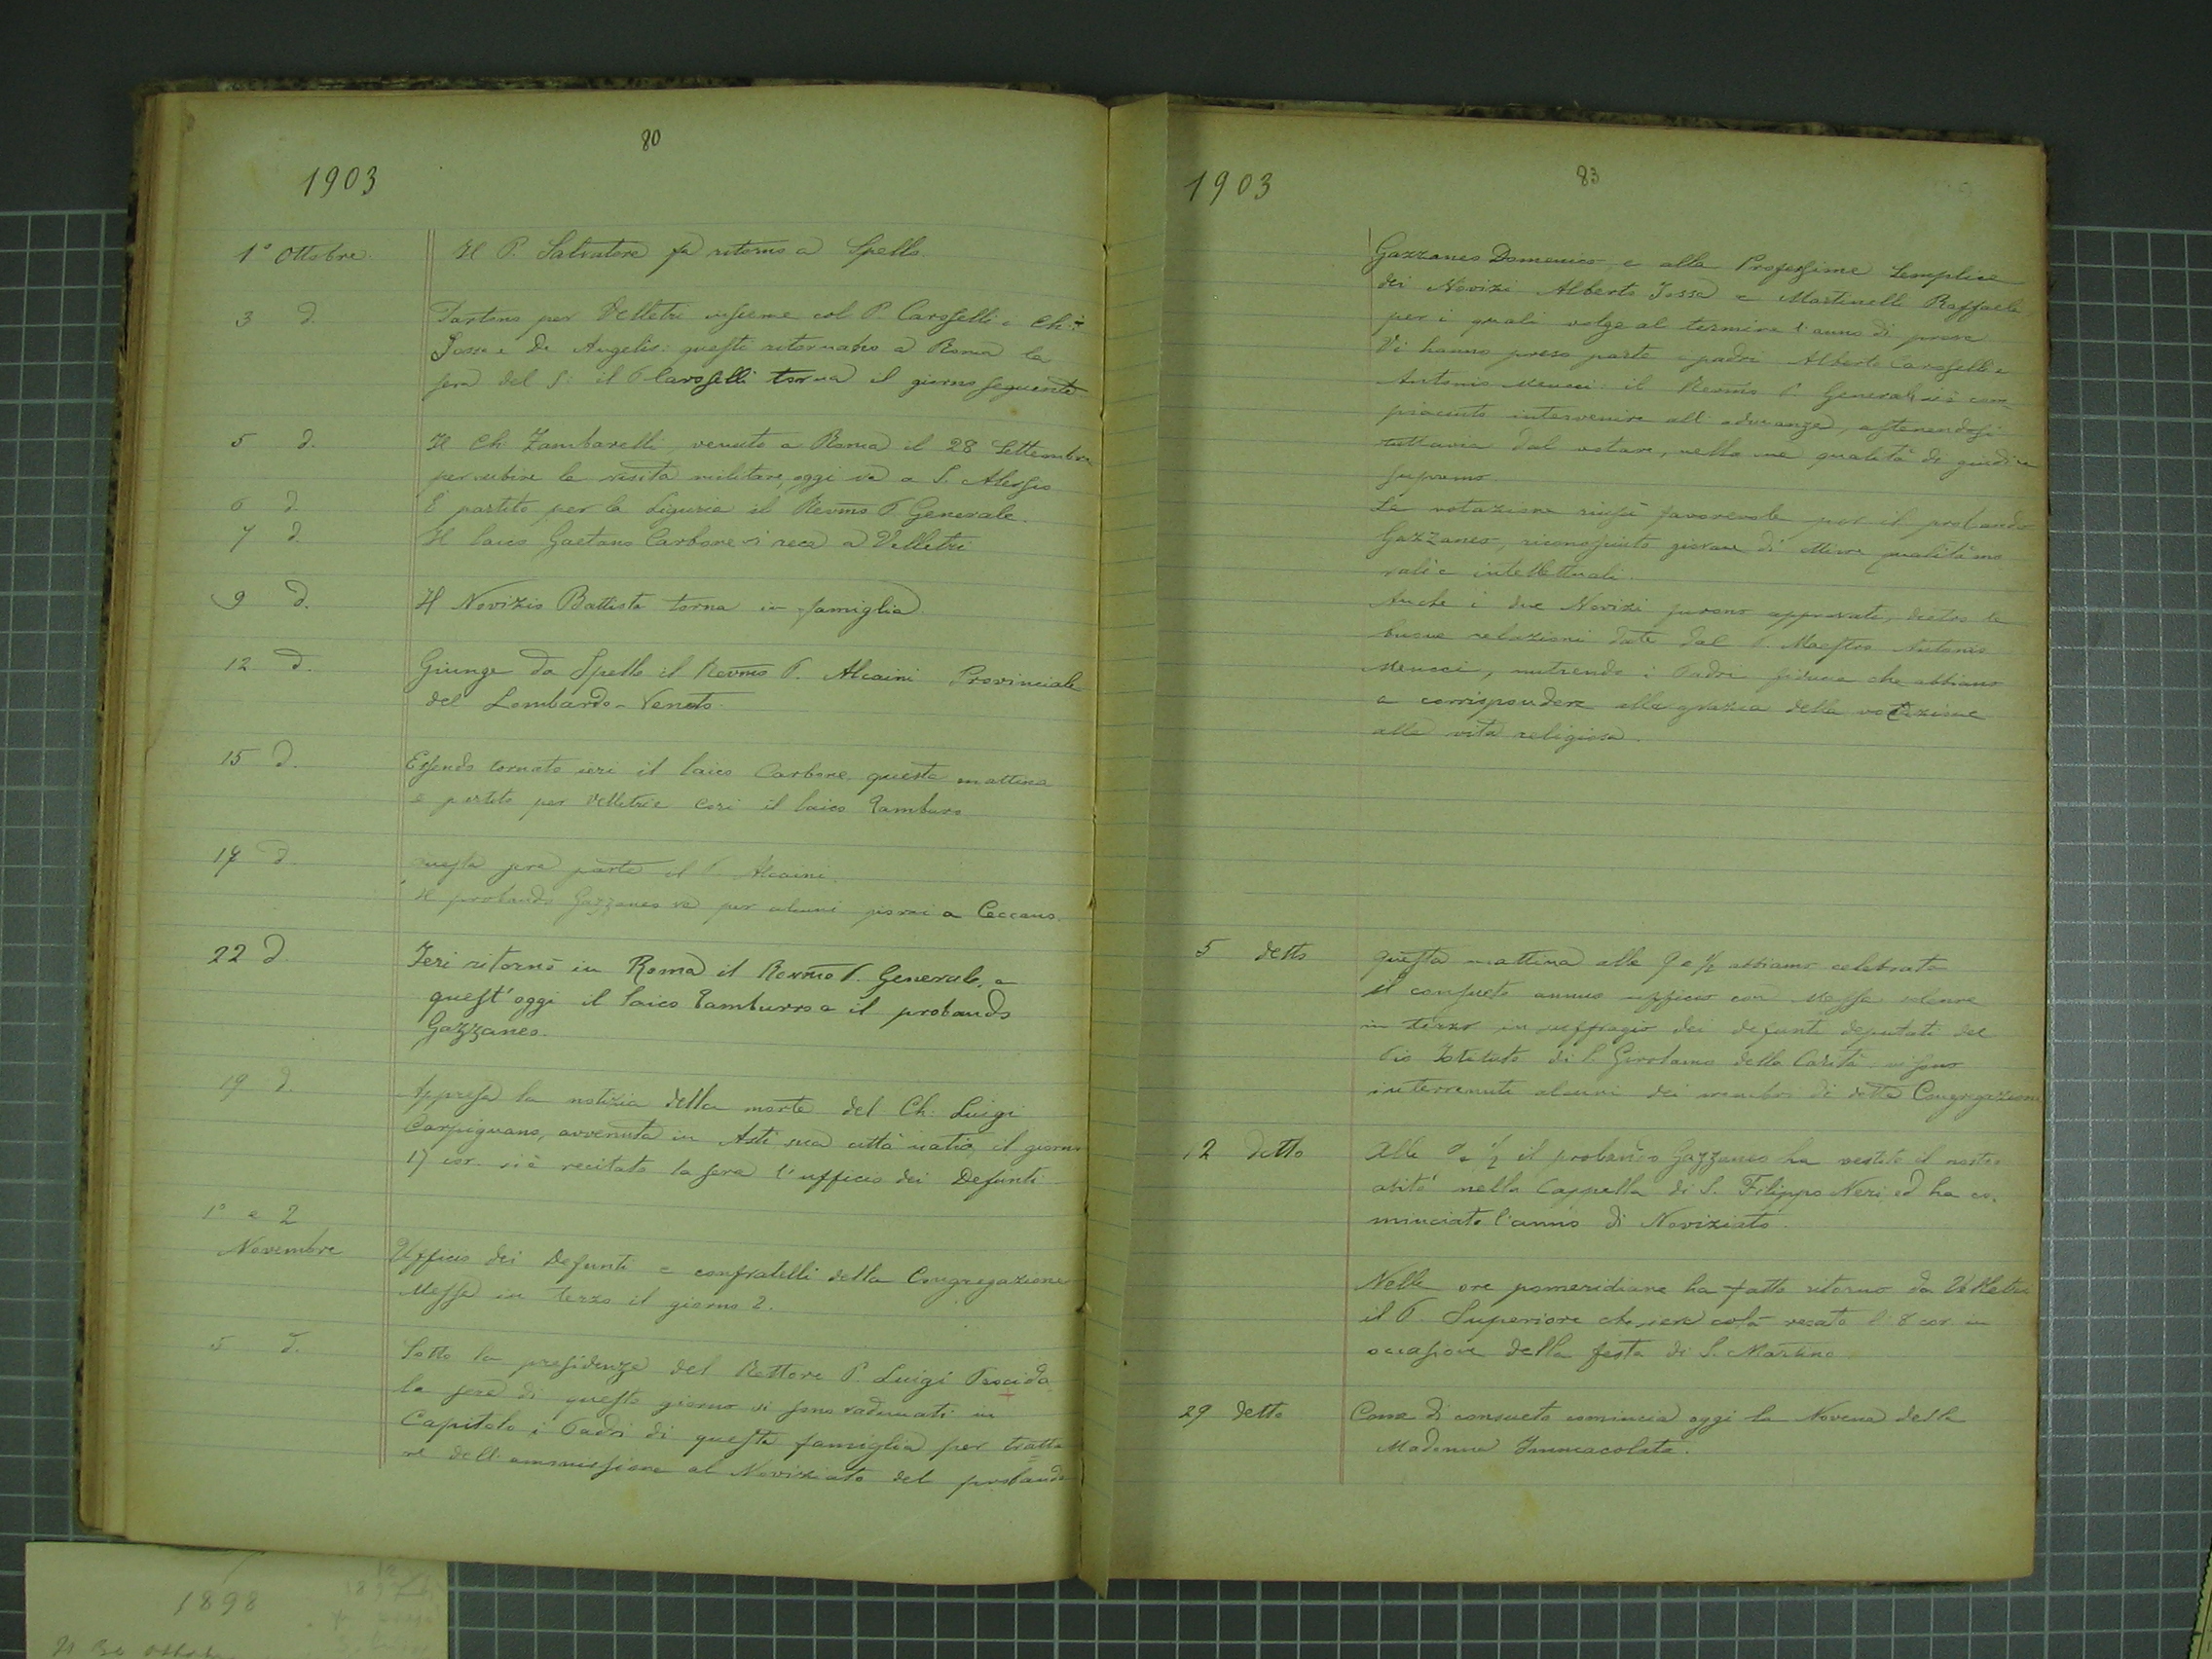 80
1903
1° Ottobre. Il P. Salvatore fa ritorno a Spello.
3 d. Partono per Velletri insieme col P. Caroselli i Ch:i
Jossa e De Angelis: questi ritornano a Roma la
sera del 5: il P. Caroselli torna il giorno seguente
5 d. Il Ch. Zambarelli, venuto a Roma il 28 Settembre
per subire la visita militare, oggi va a S. Alessio
6 d. È partito per la Liguria il Revmo P. Generale.
7 d. Il laico Gaetano Carbone si reca a Velletri
9 d. Il Novizio Battista torna in famiglia
12 d. Giunge da Spello il Revmo P. Alcaini Provinciale
del Lombardo-Veneto.
15 d. Essendo tornato ieri il laico Carbone, questa mattina
è partito per Velletri e Cori il laico Tamburo
17 d. questa sera parte il P. Alcaini.
Il probando Gazzaneo va per alcuni giorni a Ceccano.
22 d. Jeri ritornò in Roma il Revmo P. Generale, e
quest'oggi il laico Tamburro e il probando
Gazzaneo.
19 d. Appresa la notizia della morte del Ch. Luigi
Carpignano, avvenuta in Asti sua città natia, il giorno
17 cor. si è recitato la sera l'ufficio dei Defunti
1° e 2
Novembre Ufficio dei Defunti e confratelli della Congregazione
Messa in terzo il giorno 2.
5 d. Sotto la presidenza del Rettore P. Luigi Procida
la sera di questo giorno si sono radunati in
Capitolo i Padri di questa famiglia per tratta
re dell'ammissione al Noviziato del probando
1903
83
Gazzaneo Domenico, e alla Professione Semplice
dei Novizi Alberto Jossa e Martinelli Raffaele
per i quali volge al termine l'anno di prova
Vi hanno preso parte i padri Alberto Caroselli e
Antonio Meucci: il Revmo P. Generale si è com
piaciuto intervenire all'adunanza, astenendosi
tuttavia dal votare, nella sua qualità di giudice
supremo
La votazione riuscì favorevole per il probando
Gazzaneo, riconosciuto giovane di ottime qualità mo
rali e intellettuali.
Anche i due Novizi furono approvati, dietro le
buone relazioni date dal P. Maestro Antonio
Meucci, nutrendo i Padri fiducia che abbiano
a corrispondere alla grazia della vocazione
alla vita religiosa.
5 detto questa mattina alle 9 e ½ abbiamo celebrato
il consueto annuo ufficio con Messa solenne
in terzo in suffragio dei defunti deputati del
Pio Istituto di S. Girolamo della Carità: vi sono
intervenuti alcuni dei membri di detta Congregazione
12 detto Alle ½ il probando Gazzaneo ha vestito il nostro
abito nella Cappella di S. Filippo Neri ed ha co.
minciato l'anno di Noviziato.
Nelle ore pomeridiane ha fatto ritorno da Velletri
il P. Superiore che s'era colà recato l'8 cor. in
occasione della festa di S. Martino
29 detto Come di consueto comincia oggi la Novena della
Madonna Immacolata.
1898
Il 30 Ottobre